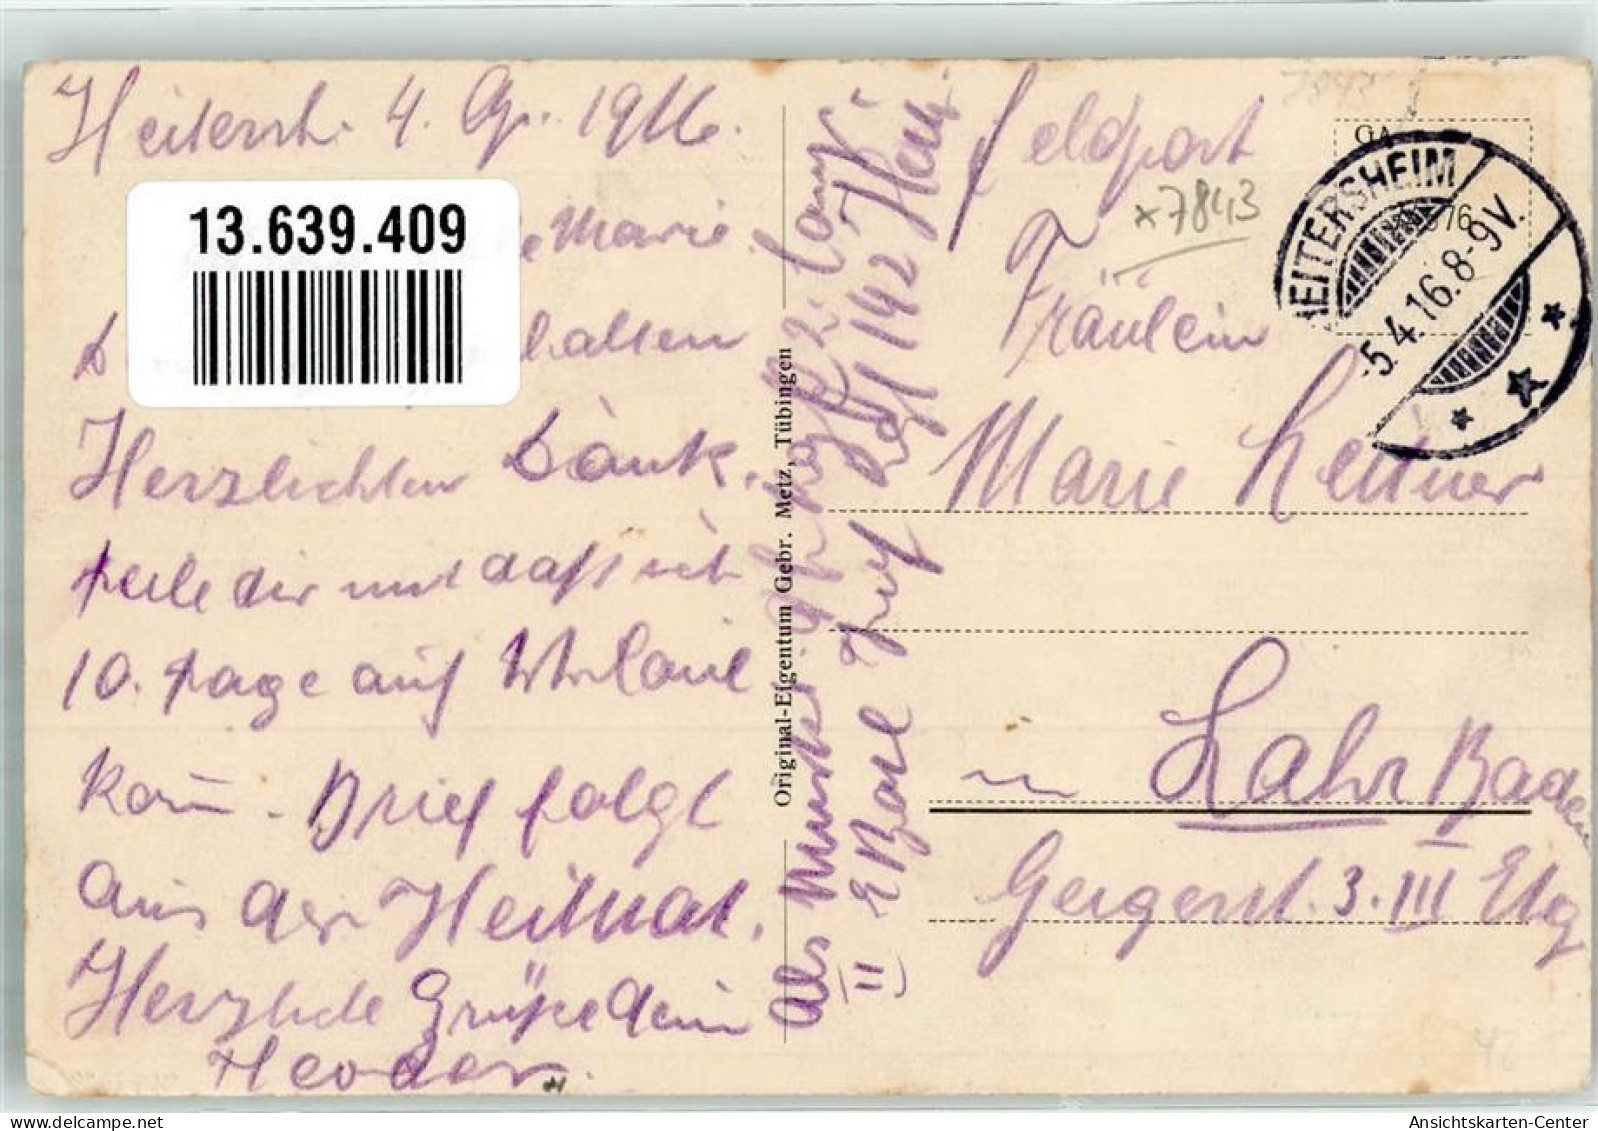 Heitersh. 4. Ap. 1916.
13.639.409
Marie
halten
Herzlichten Dank.
teile dir mit daß ich
10. tage auf Urlaub
kom. Brief folgt
aus der Heimat.
Herzliche Grüße dein
Teodor.
Original-Eigentum Gebr. Metz, Tübingen
Als
II E Batl Inf Rgt 142
Feldpost
*7843
Fräulein
Marie Leitner
in Lahr Baden
Geigerst. 3. III Etg
HEITERSHEIM
-5.4.16.8-9V.
Ansichtskarten-Center